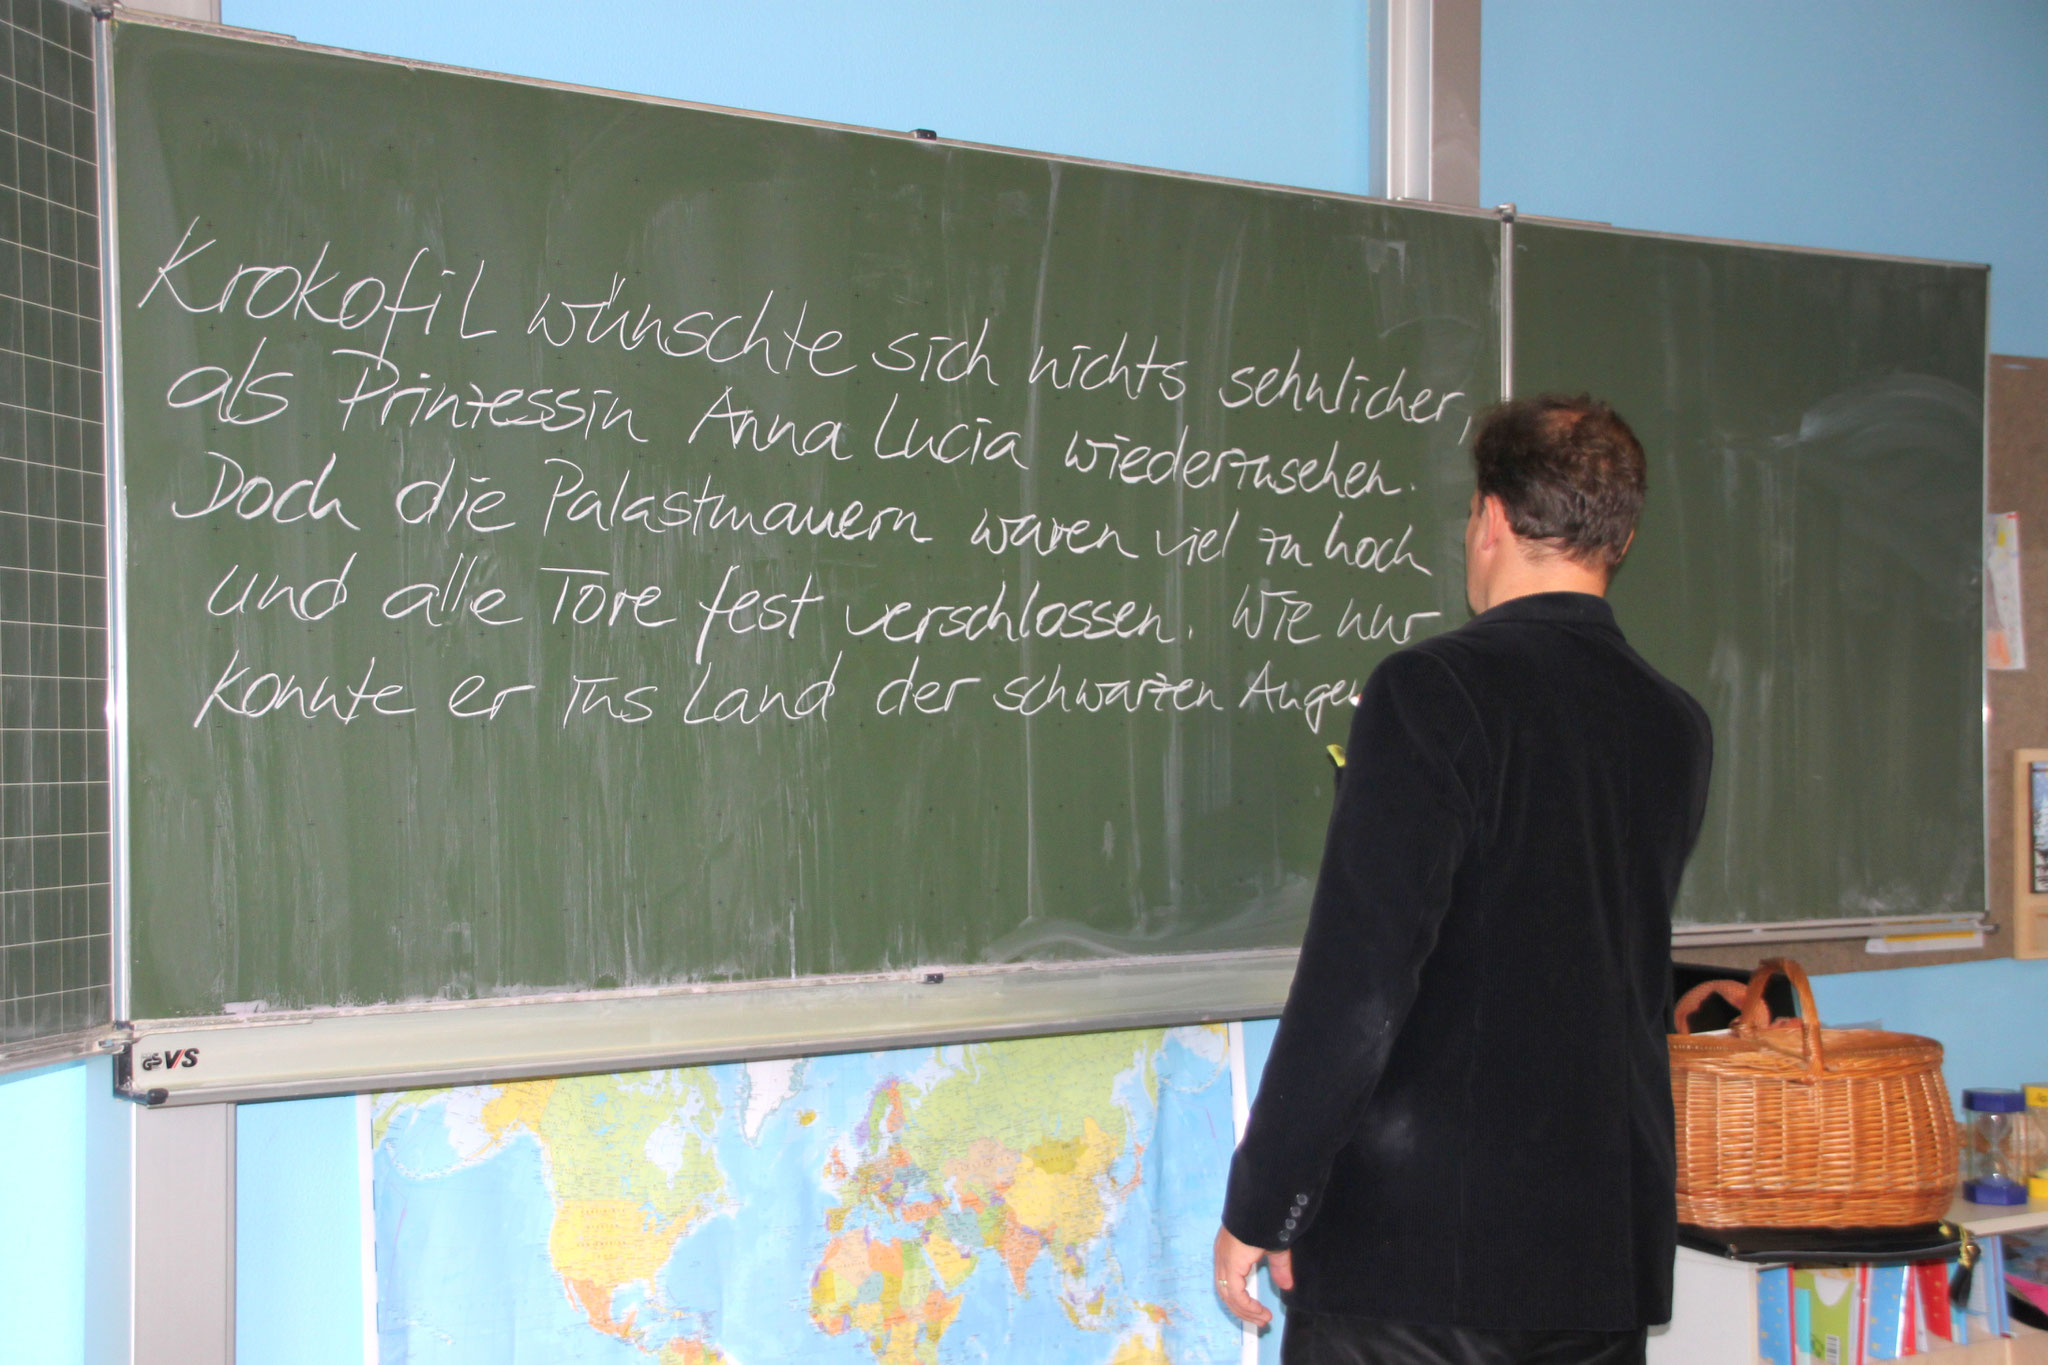 Krokofil wünschte sich nichts sehnlicher,
als Prinzessin Anna Lucia wiederzusehen.
Doch die Palastmauern waren viel zu hoch
und alle Tore fest verschlossen. Wie nur
konnte er ins Land der schwarzen Augen
GS VS